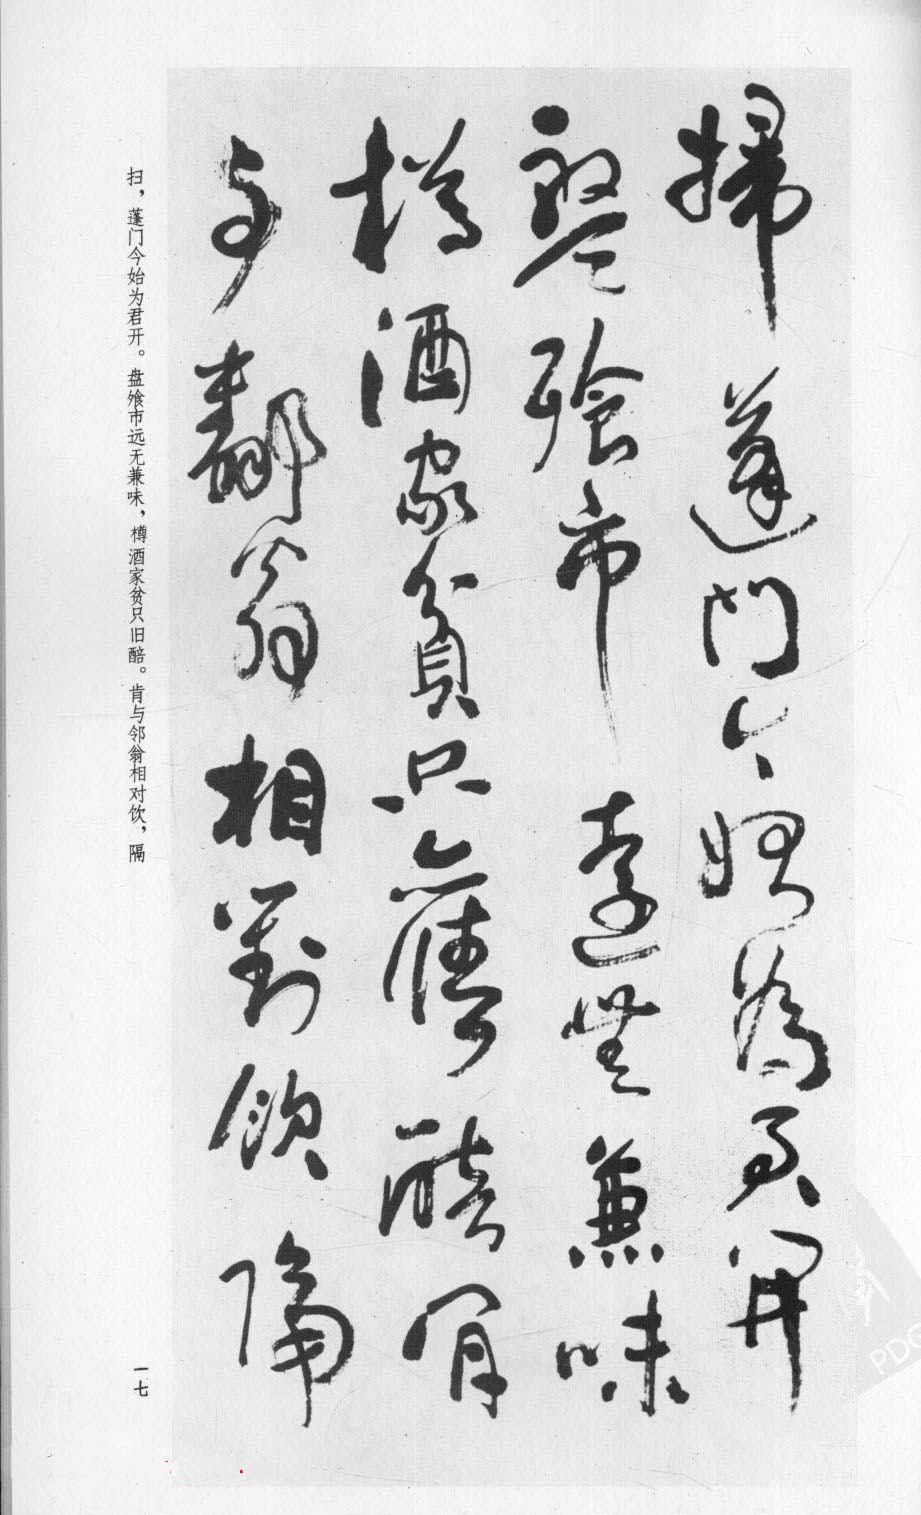 掃蓬門今始為君開
盤飱市遠無兼味
樽酒家貧只舊醅肯
与鄰翁相對飲隔
扫，蓬门今始为君开。盘飧市远无兼味，樽酒家贫只旧醅。肯与邻翁相对饮，隔
一七
PDG